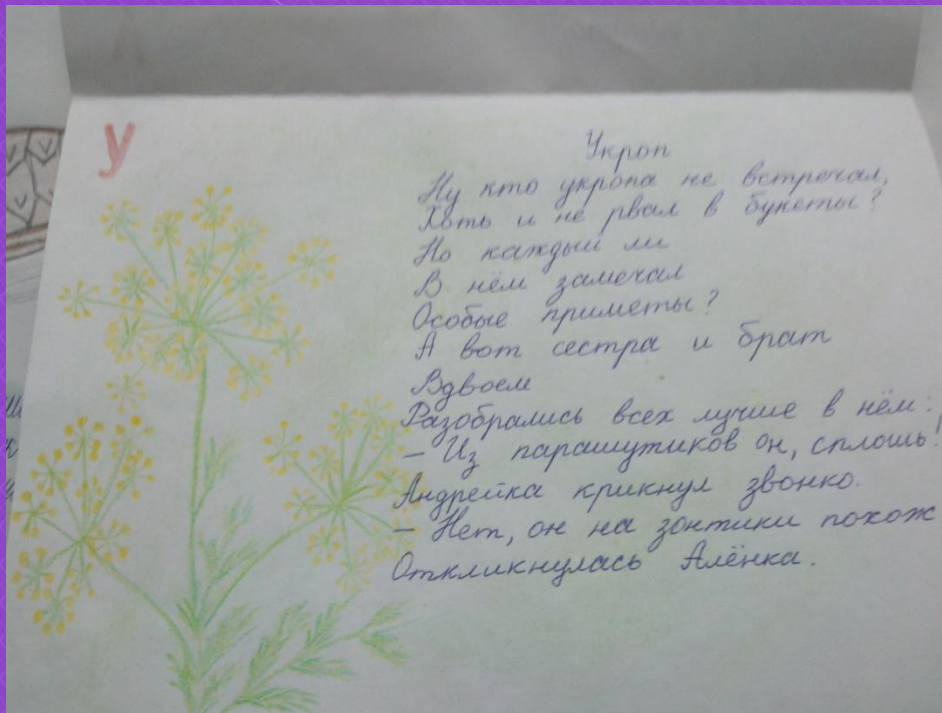 У
Укроп
Ну кто укропа не встречал,
Хоть и не рвал в букеты?
Но каждый ли
В нём замечал
Особые приметы?
А вот сестра и брат
Вдвоем
Разобрались всех лучше в нём:
– Из парашутиков он, сплошь!
Андрейка крикнул звонко.
– Нет, он на зонтики похож
Откликнулась Алёнка.